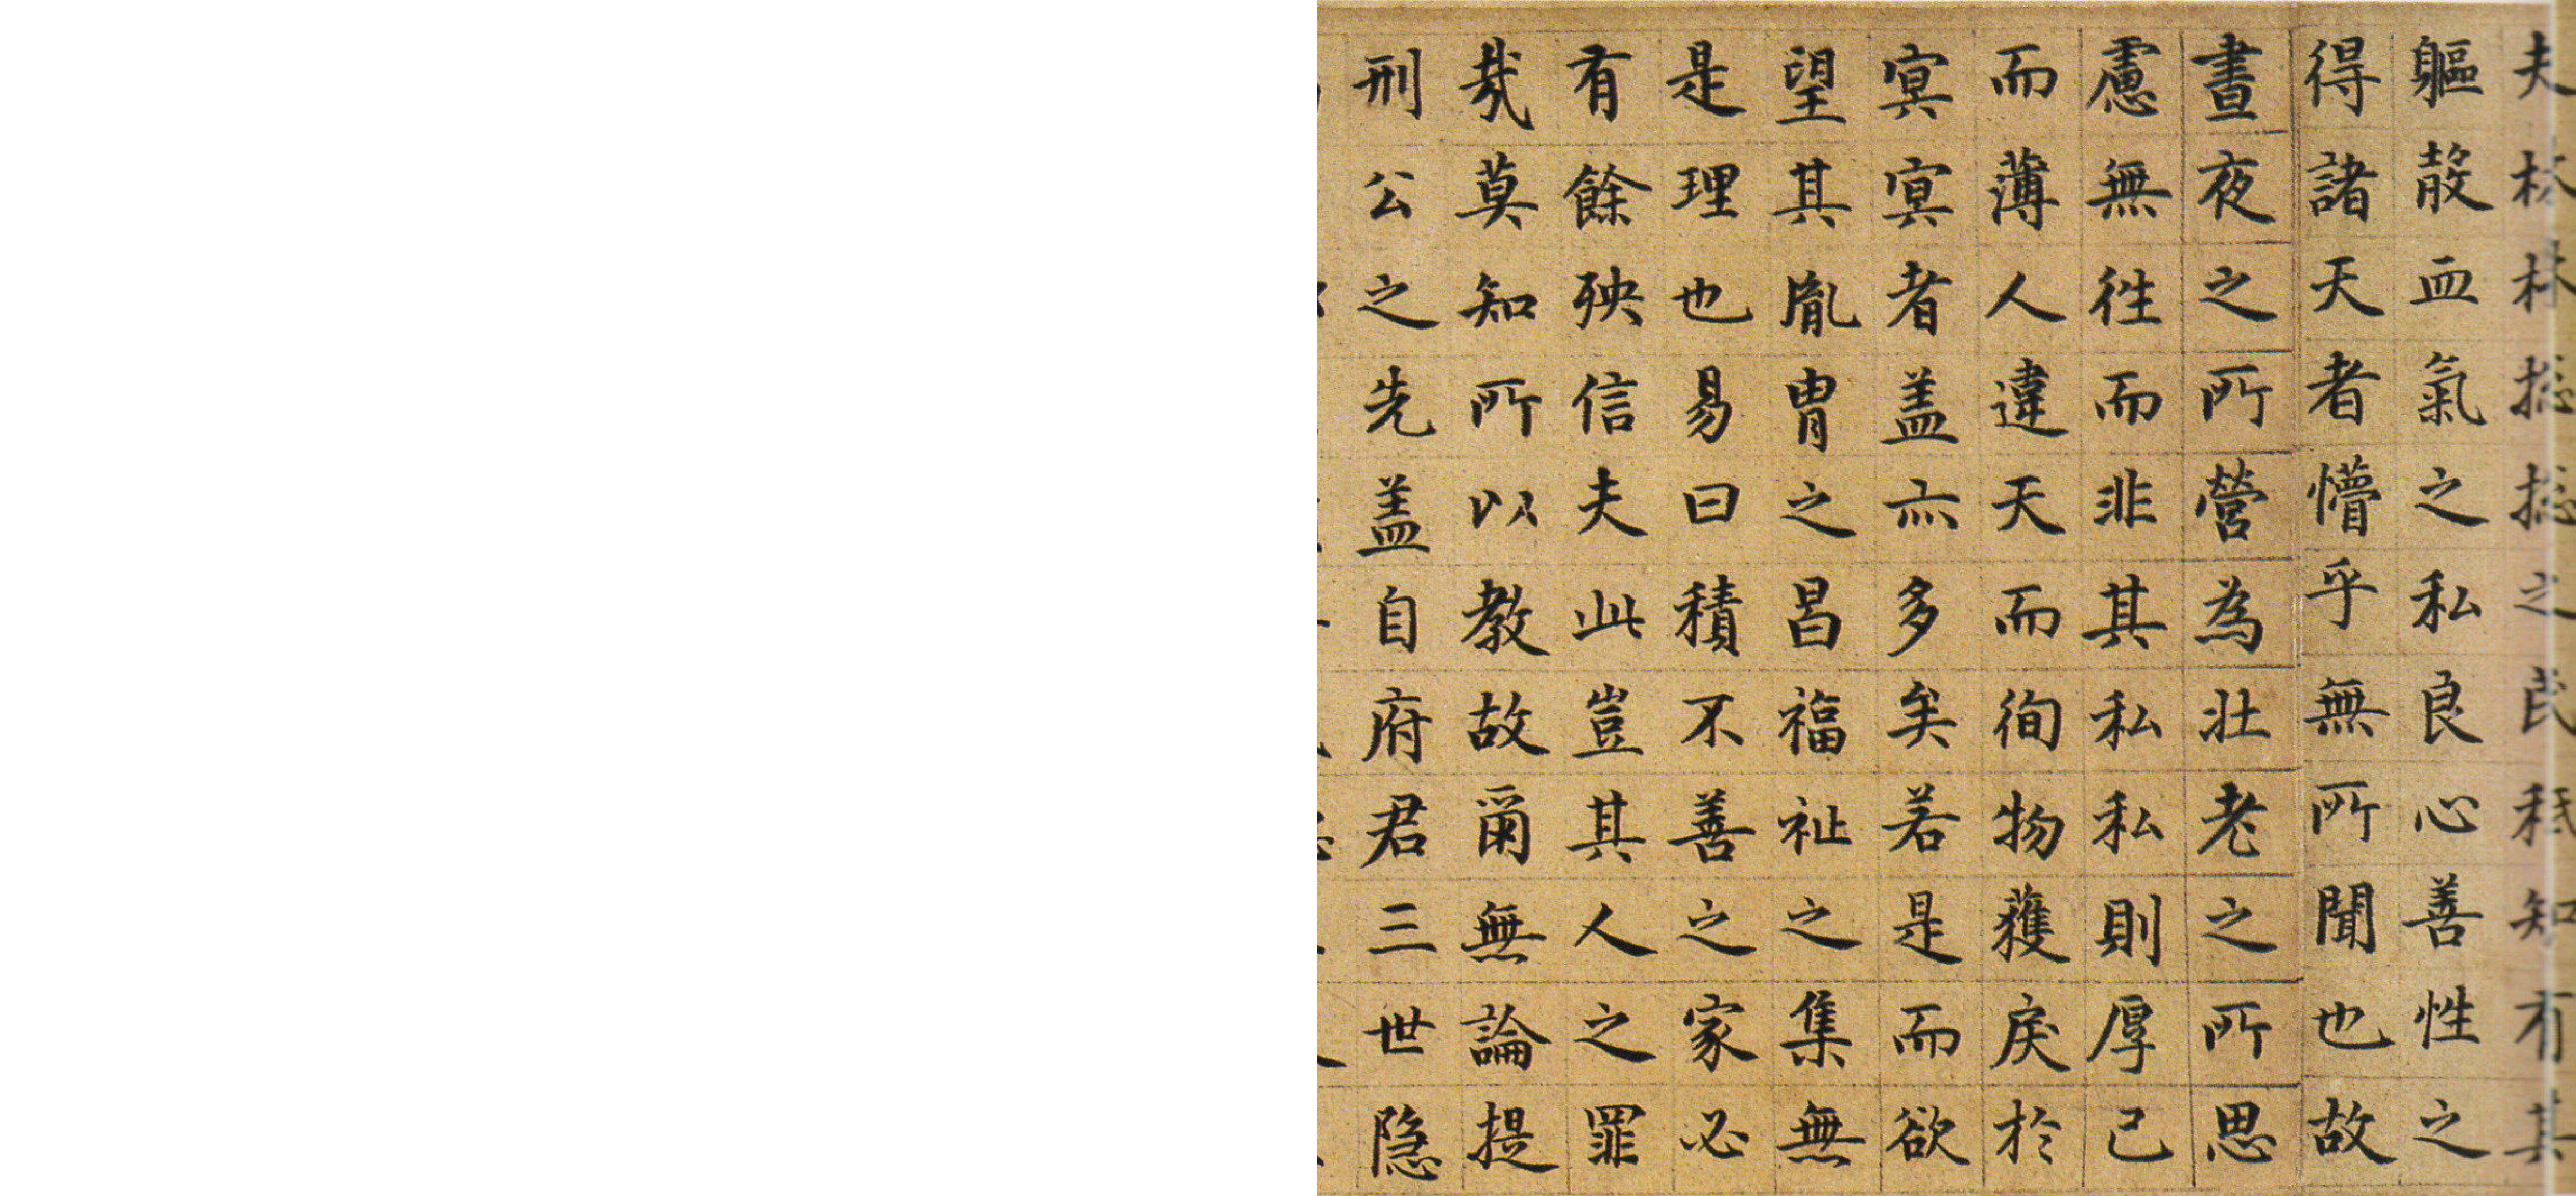 夫林林揔揔之民秪知有其
軀殽血氣之私良心善性之
得諸天者懵乎無所聞也故
晝夜之所營為壯老之所思
慮無往而非其私私則厚己
而薄人違天而徇物獲戾於
冥冥者盖亦多矣若是而欲
望其胤胄之昌福祉之集無
是理也易曰積不善之家必
有餘殃信夫此豈其人之罪
哉莫知所以教故爾無論提
刑公之先盖自府君三世隐